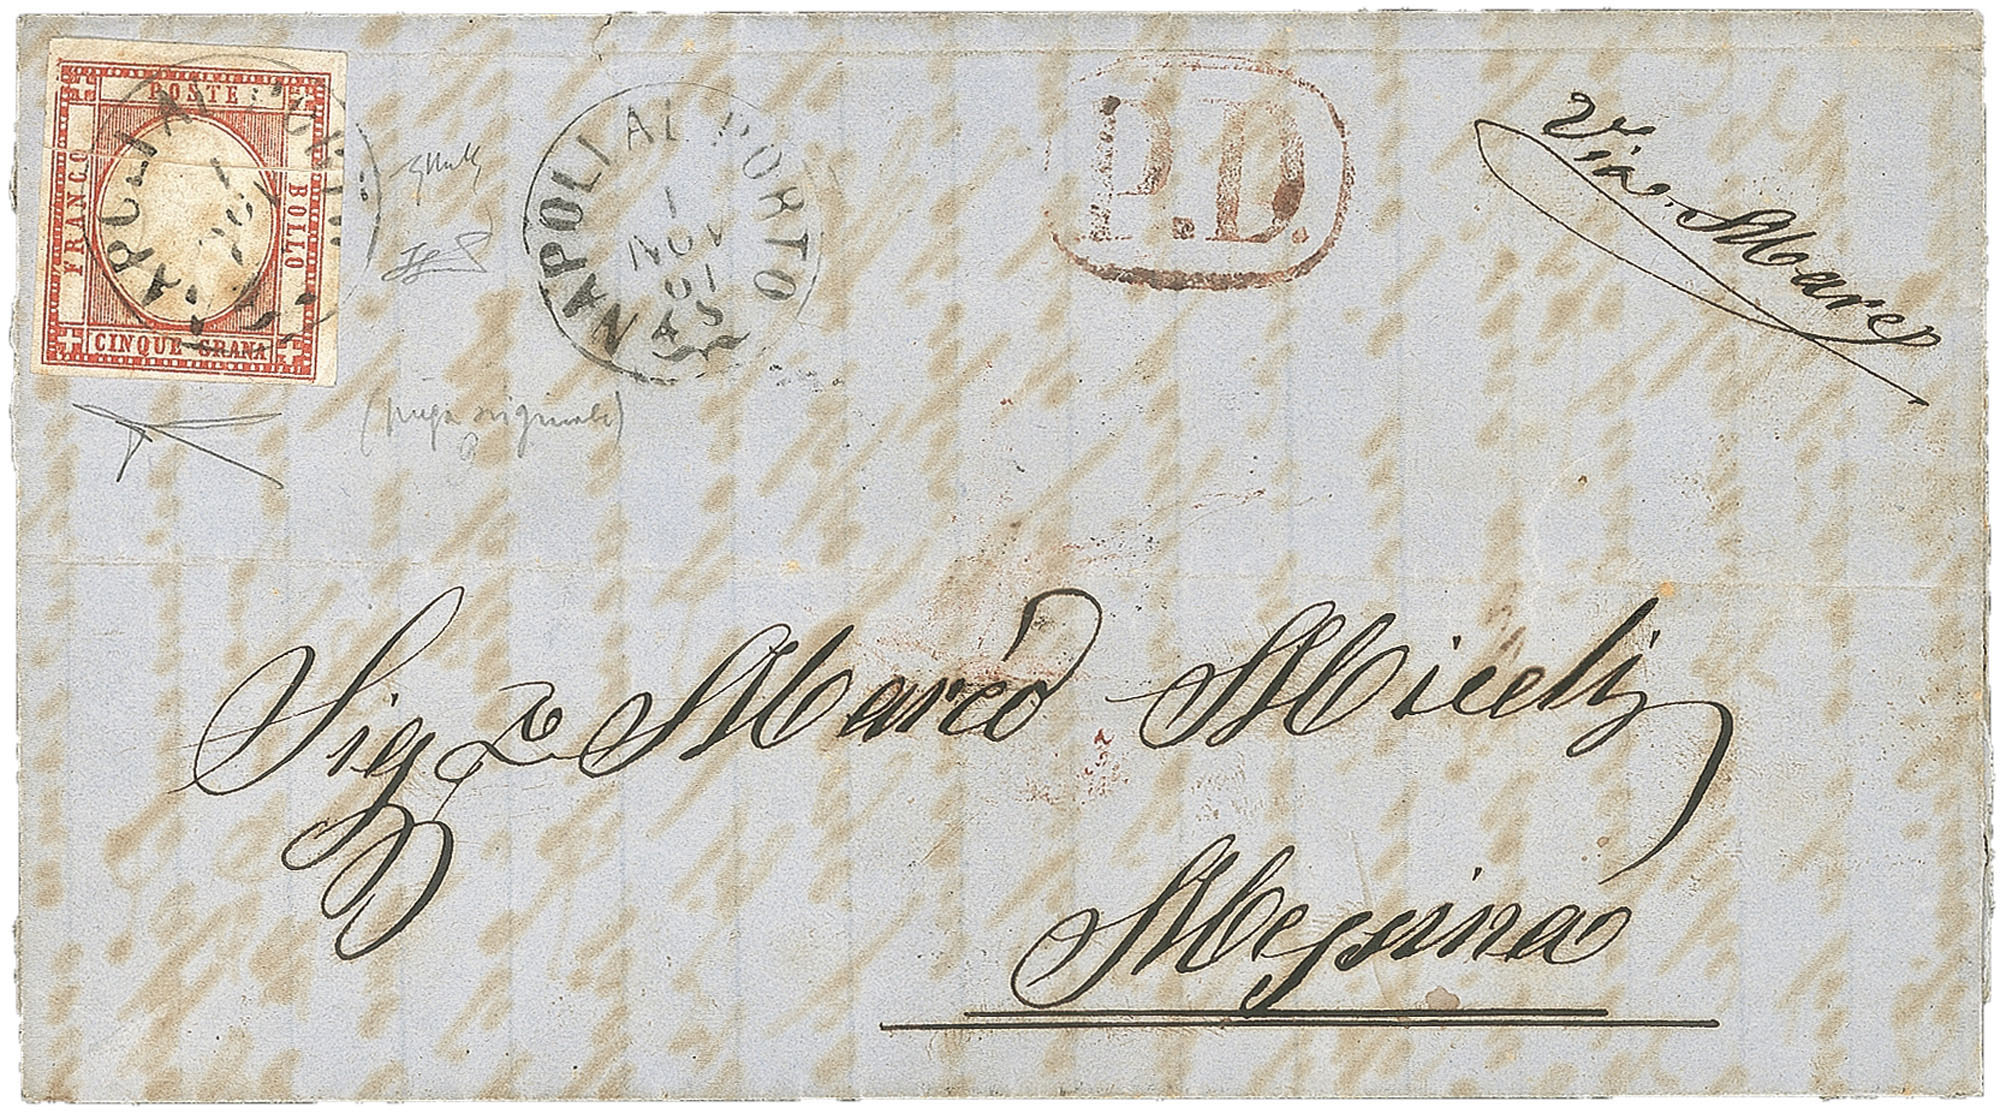 POSTE
FRANCO
BOLLO
CINQUE GRANA
NAPOLI AL PORTO
1
NOV
61
P.D.
Via di Mare
(piega originale)
Sigr Marco Miceli
Messina